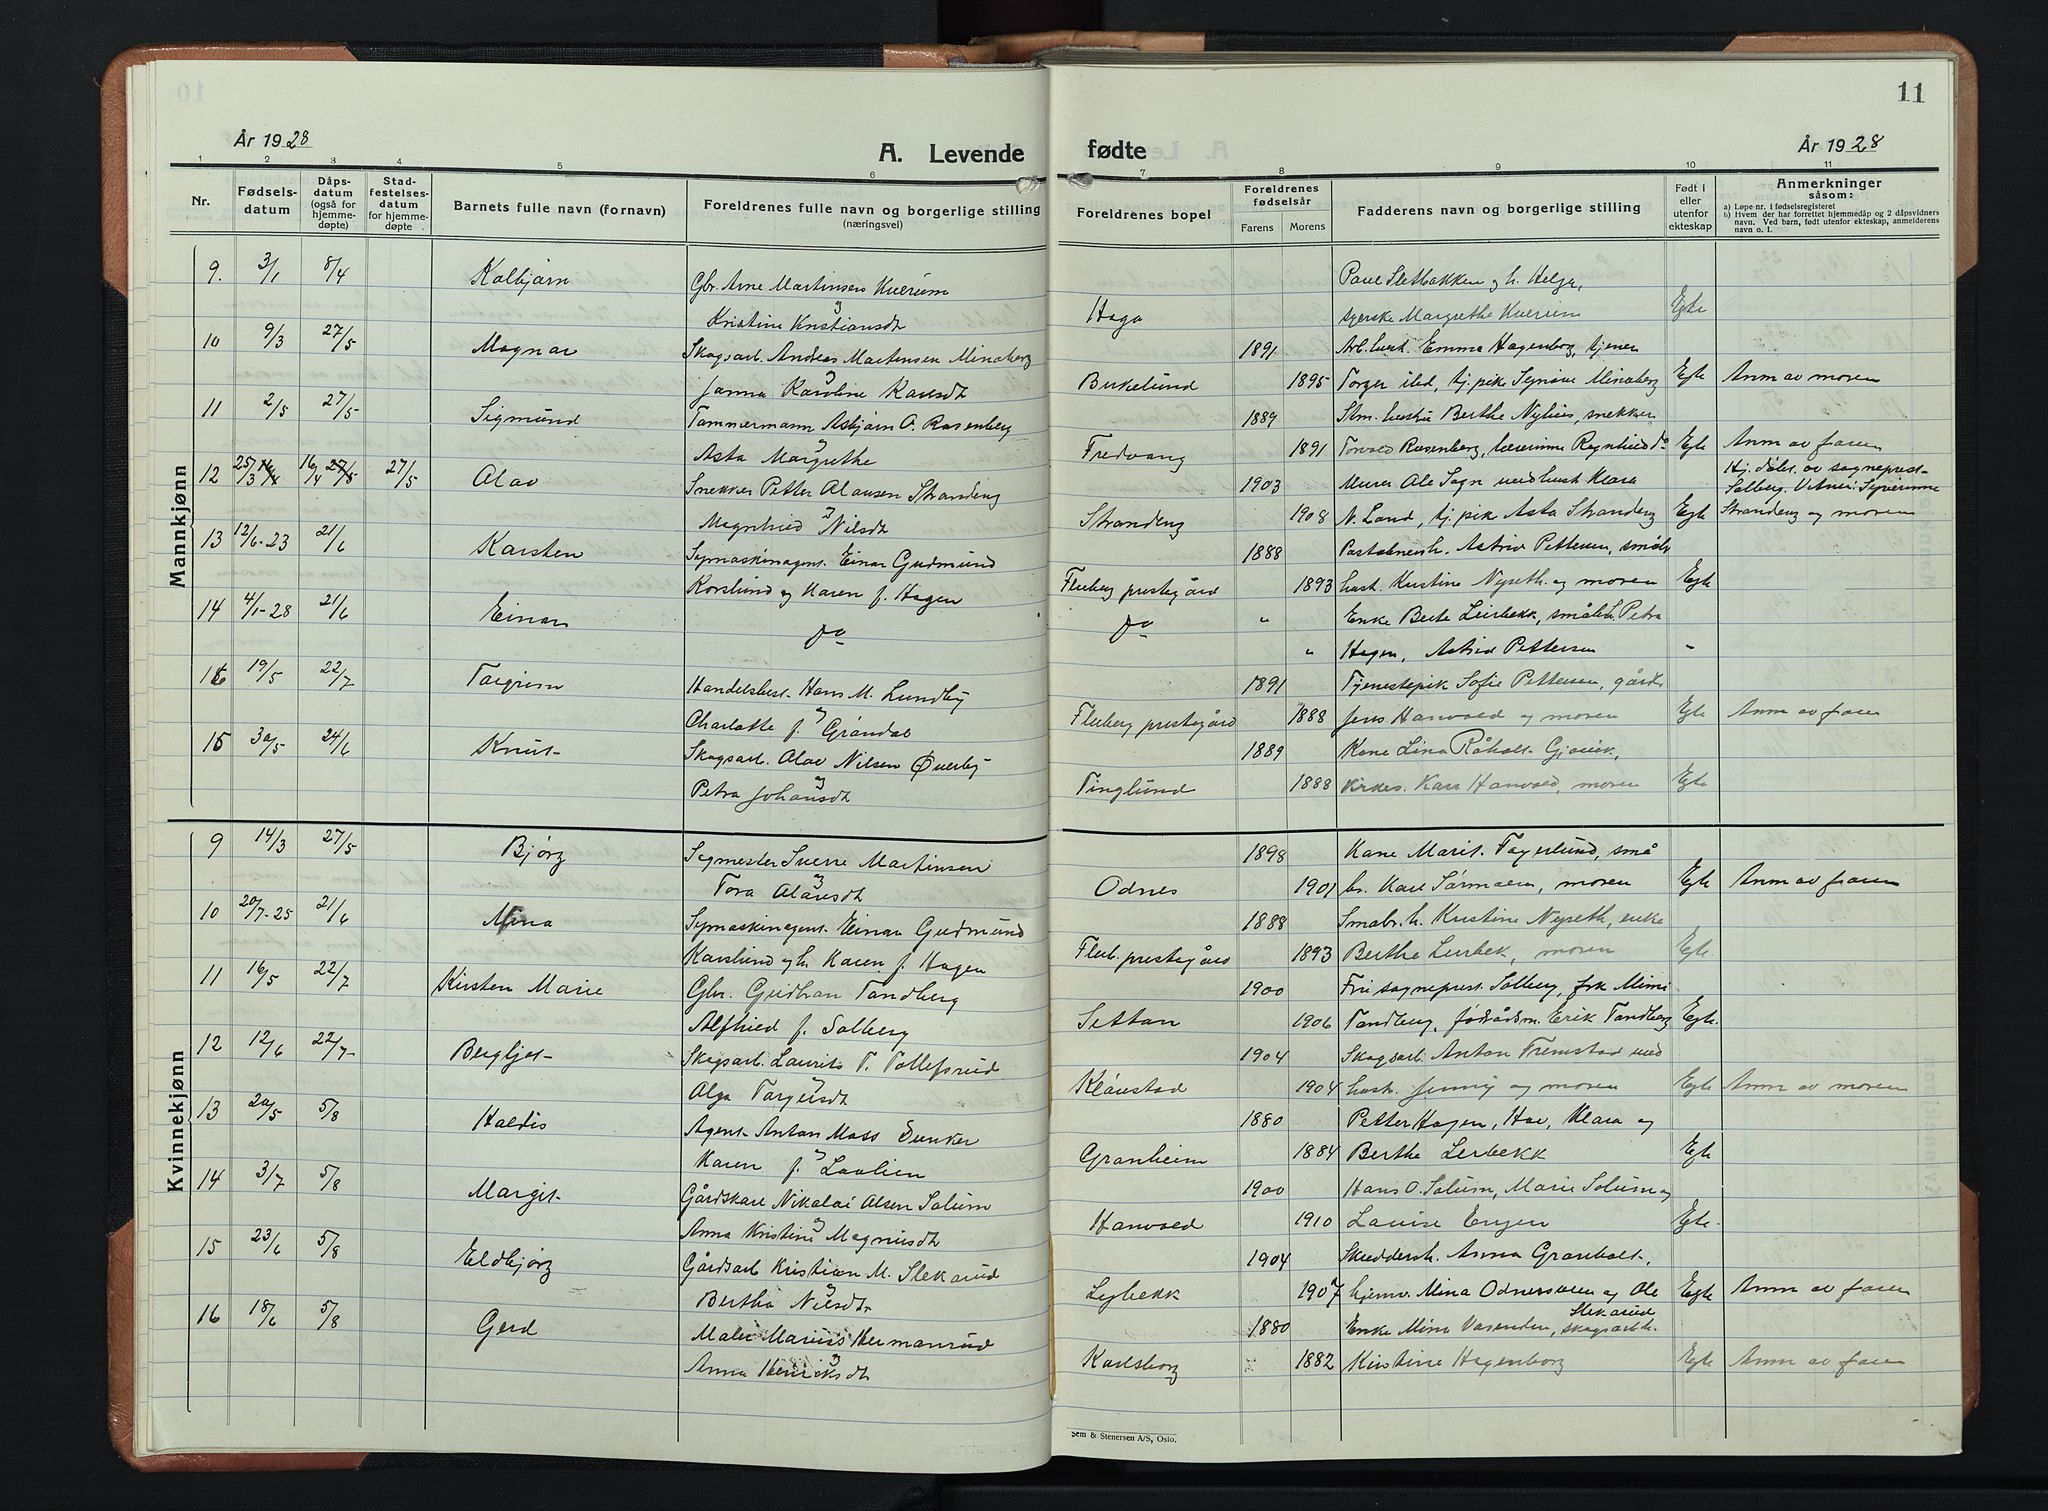 11
År 1928
A. Levende
fødte
År 1928
1 2 3 4 5 6 7 8 9 10 11
Nr.
Fødsels-
datum
Dåps-
datum
(også for
hjemme-
døpte)
Stad-
festelses-
datum
for hjemme-
døpte
Barnets fulle navn (fornavn)
Foreldrenes fulle navn og borgerlige stilling
(næringsvei)
Foreldrenes bopel
Foreldrenes
fødselsår
Farens Morens
Fadderens navn og borgerlige stilling
Født i
eller
utenfor
ekteskap
Anmerkninger
såsom:
a) Løpe-nr. i fødselsregisteret
b) Hvem der har forrettet hjemmedåp og 2 dåpsvidners
navn. Ved barn, født utenfor ekteskap, anmelderens
navn o. l.
Mannkjønn
9. 3/1 8/4 Kolbjørn Gbr. Arne Martinsen Kverum
Kristine Kristiansdt
Haga
Paul Sletbakken og h. Helga,
syerske Margrethe Kverum Egte
10 9/3 27/5 Magnar Skogsarb. Andreas Martinsen Minaberg
Janna Karoline Karlsdt
Birkelund 1891 Arb. hust. Emma Hagenborg, tjener
1895 Torger ibd, tj. pik Synøve Minaberg Egte Anm av moren
11 2/5 27/5 Sigmund Tømmermann Asbjørn O. Rosenberg
Asta Margrethe
Fredvang 1889 Stm. hustru Berthe Nyhus, snekker
1891 Torvald Rosenberg, lærerinne Ragnhild do Egte Anm av faren
12 25/3 16/4 27/5 27/5 Olav Snekker Petter Olausen Strandeng
Magnhild Nilsdt
Strandeng 1903 Murer Ole Sogn med hust Klara
1908 N. Land, tj. pik Asta Strandeng Egte
Hj. døbt av sogneprest
Solberg. Vitner: Syverinne
Strandeng og moren
13 12/6-23 21/6 Karsten Symaskinagent Einar Gudmund
Korslund og Karen f. Hagen
Fluberg prestegård 1888 Postaabnersk. Astrid Pettersen, småbr
1893 hust. Kristine Nyreth. og moren Egte
14 4/1-28 21/6 Einar do
do " Enke Berte Leirbekk, småbr. Petra
" Hagen, Astrid Pettersen -
16 19/5 22/7 Torgrim Handelsbest. Hans M. Lundby
Charlotte f. Grøndal
Fluberg prestegård 1891 Tjenestepik Sofie Pettersen, gårdbr
1888 Jens Hanvold og moren Egte Anm av faren
15 30/5 24/6 Knut Skogsarb. Olav Nilsen Øverby
Petra Johansdt
Tinglund 1889 Kone Lina Råholt Gjøvik,
1888 kirkes. Karl Hanvold, moren Egte
Kvinnekjønn
9 14/3 27/5 Bjørg Sagmester Sverre Martinsen
Tora Olausdt
Odnes 1898 Kone Marit Fagerlund, små
1901 br. Karl Sørmoen, moren Egte Anm av faren
10 20/7-25 21/6 Mina Symaskinagent Einar Gudmund
Korslund og h. Karen f. Hagen
Flub. prestegård 1888 Småbr. h. Kristine Nyreth, enke
1893 Berthe Leirbek, moren Egte.
11 16/5 22/7 Kirsten Marie Gbr. Gudbran Tandberg
Alfhild f. Solberg
Settan 1900 Fru sogneprest Solberg, frk Mimi
1906 Tandberg, fødrådsm. Erik Tandberg Egte.
12 12/6 22/7 Bergljot Skogsarb. Laurits T. Tollefsrud
Olga Torgersdt
Klånstad 1904 Skogsarb. Anton Fremstad med
1904 hust. Jenny og moren Egte Anm av moren
13 20/5 5/8 Haldis Agent Anton Moss Sunker
Karen f. Laalien
Granheim 1880 Petter Hagen, Hov, Klara og
1884 Berthe Lerbekk Egte
14 3/7 5/8 Margit Gårdskarl Nikolai Olsen Solum
Anna Kristine Magnusdt
Hanvold 1900 Hans O. Solum, Marie Solum og
1910 Louise Engen Egte.
15 23/6 5/8 Eldbjørg Gårdsarb Kristian M. Slekarud
Bertha Nilsdt
Lybekk 1904 Skreddersk. Anna Granholt,
1907 hjemv. Mina Odnesveen og Ole
Slekarud Egte Anm av faren
16 18/6 5/8 Gerd Maler Marius Hermanrud
Anna Henriksdt
Karlsborg 1880 Enke Mina Vasenden, skogsarbh.
1882 Kristine Hagenborg Egte Anm av faren
Sem & Stenersen A/S, Oslo.